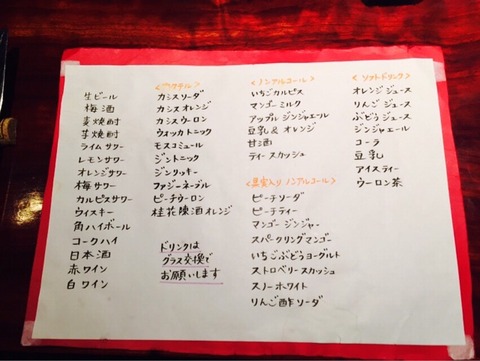 生ビール
梅酒
麦焼酎
芋焼酎
ライムサワー
レモンサワー
オレンジサワー
梅サワー
カルピスサワー
ウイスキー
角ハイボール
コークハイ
日本酒
赤ワイン
白ワイン
<カクテル>
カシスソーダ
カシスオレンジ
カシスウーロン
ウォッカトニック
モスコミュール
ジントニック
ジンリッキー
ファジーネーブル
ピーチウーロン
桂花陳酒オレンジ
ドリンクは
グラス交換で
お願いします
<ノンアルコール>
いちごカルピス
マンゴーミルク
アップルジンジャエール
豆乳&オレンジ
甘酒
ティースカッシュ
<果実入りノンアルコール>
ピーチソーダ
ピーチティー
マンゴージンジャー
スパークリングマンゴー
いちごぶどうヨーグルト
ストロベリースカッシュ
スノーホワイト
りんご酢ソーダ
<ソフトドリンク>
オレンジジュース
りんごジュース
ぶどうジュース
ジンジャエール
コーラ
豆乳
アイスティー
ウーロン茶